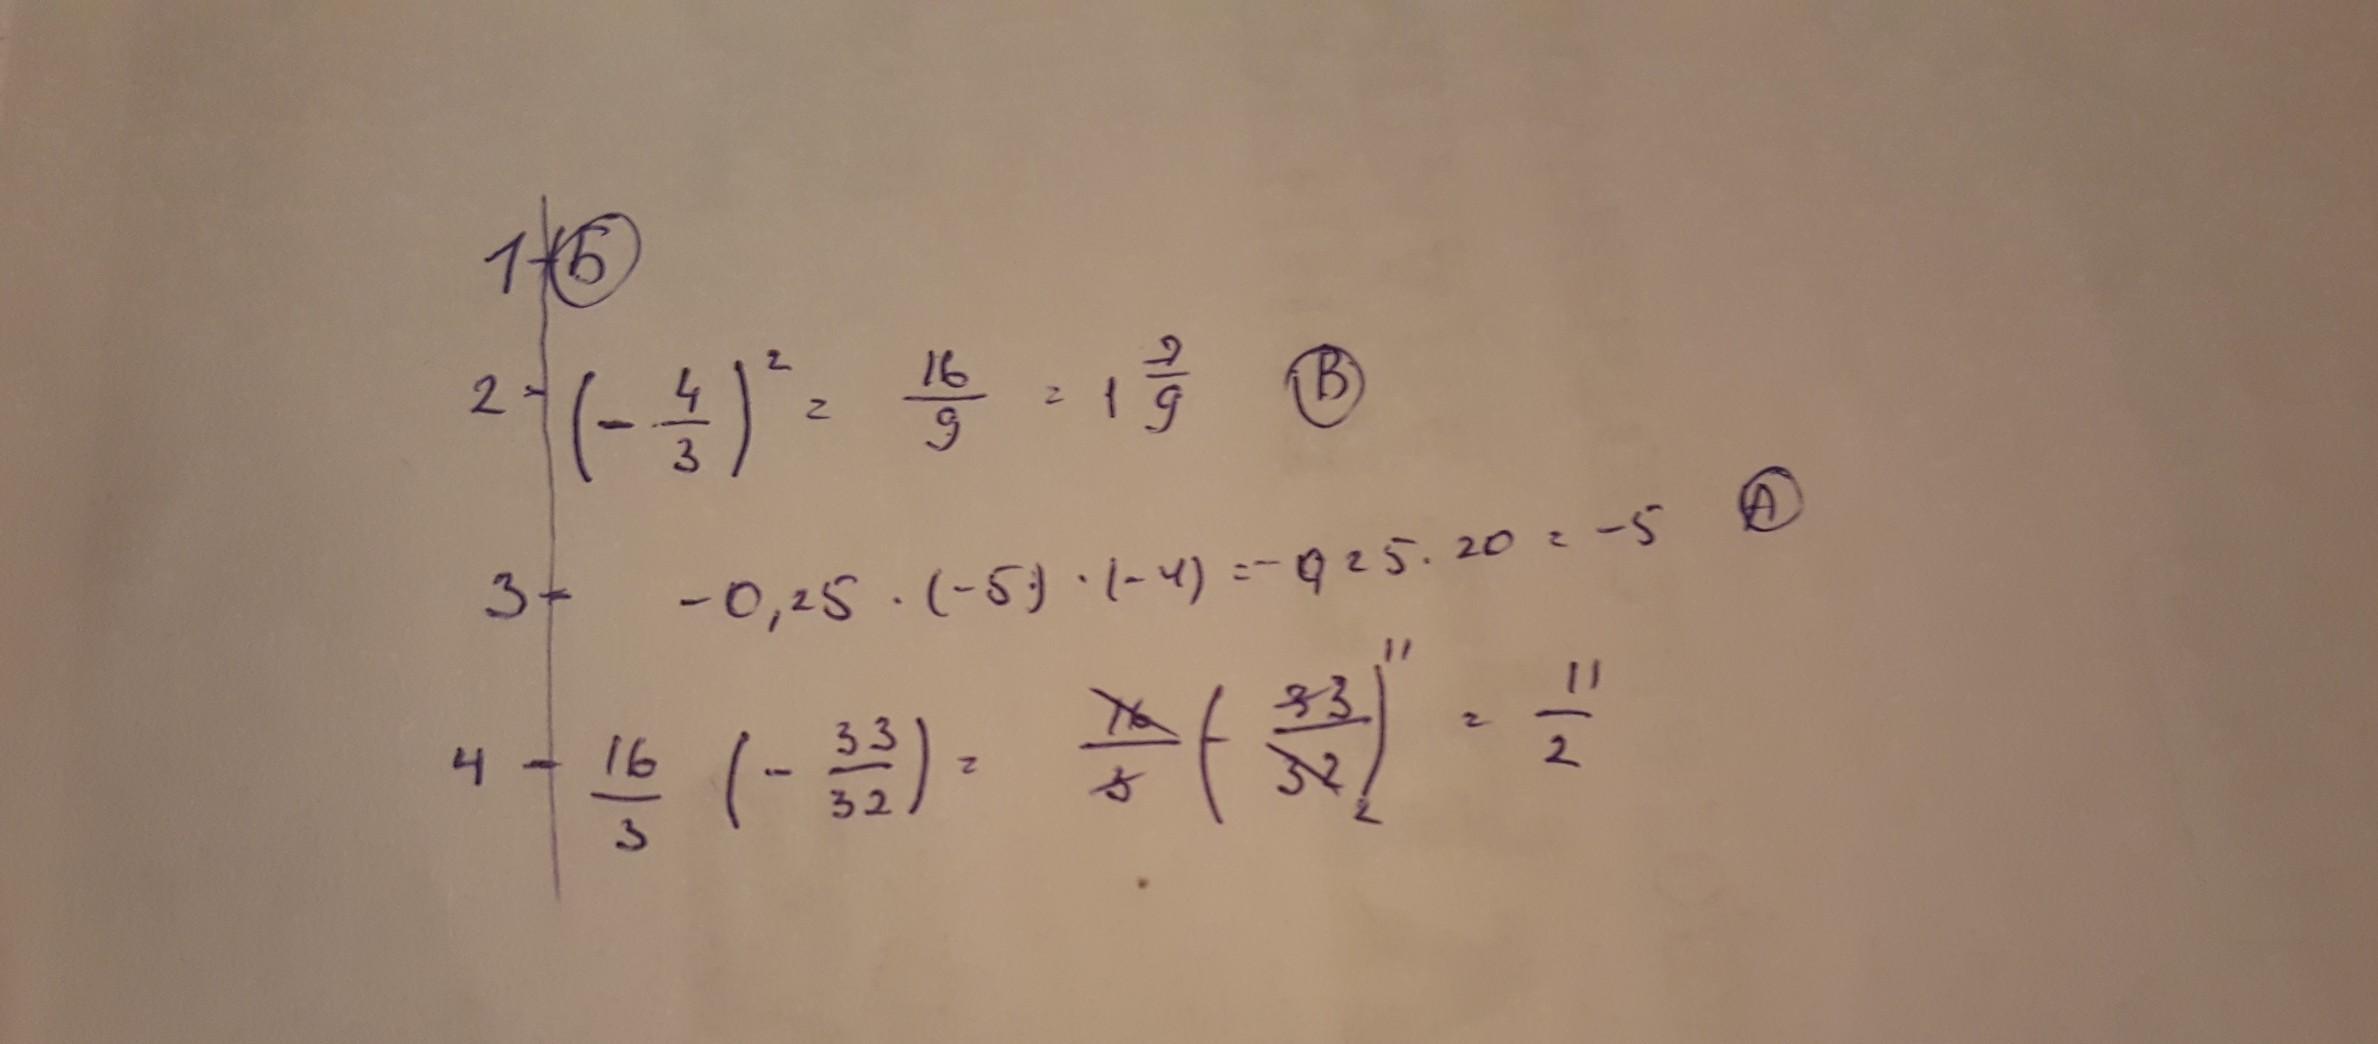 1 - Б
2 - (- 4/3)² = 16/9 = 1 7/9 В
3 - -0,25 . (-5) . (-4) = -0,25 . 20 = -5 А
4 - 16/3 (- 33/32) = 16/3 (- 33/32) 11 2 = 11/2